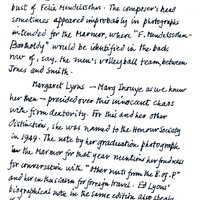 bust of Felix Mendelssohn. The composer's head
sometimes appeared improbably in photographs
intended for the Marmor, where "F. Mendelssohn-
Bartholdy" would be identified in the back
row of, say, the men's volleyball team, between
Jones and Smith.
Margaret Lyons — Mary Inouye as we knew
her then — presided over this innocent chaos
with firm dexterity. For this and her other
distinction, she was named to the Honour Society
in 1949. The note by her graduation photograph
in the Marmor for that year mentions her fondness
for conversation with "other nuts from the B.of.P."
and her enthusiasm for foreign travel. Ed Lyons'
biographical note in the same edition also speaks